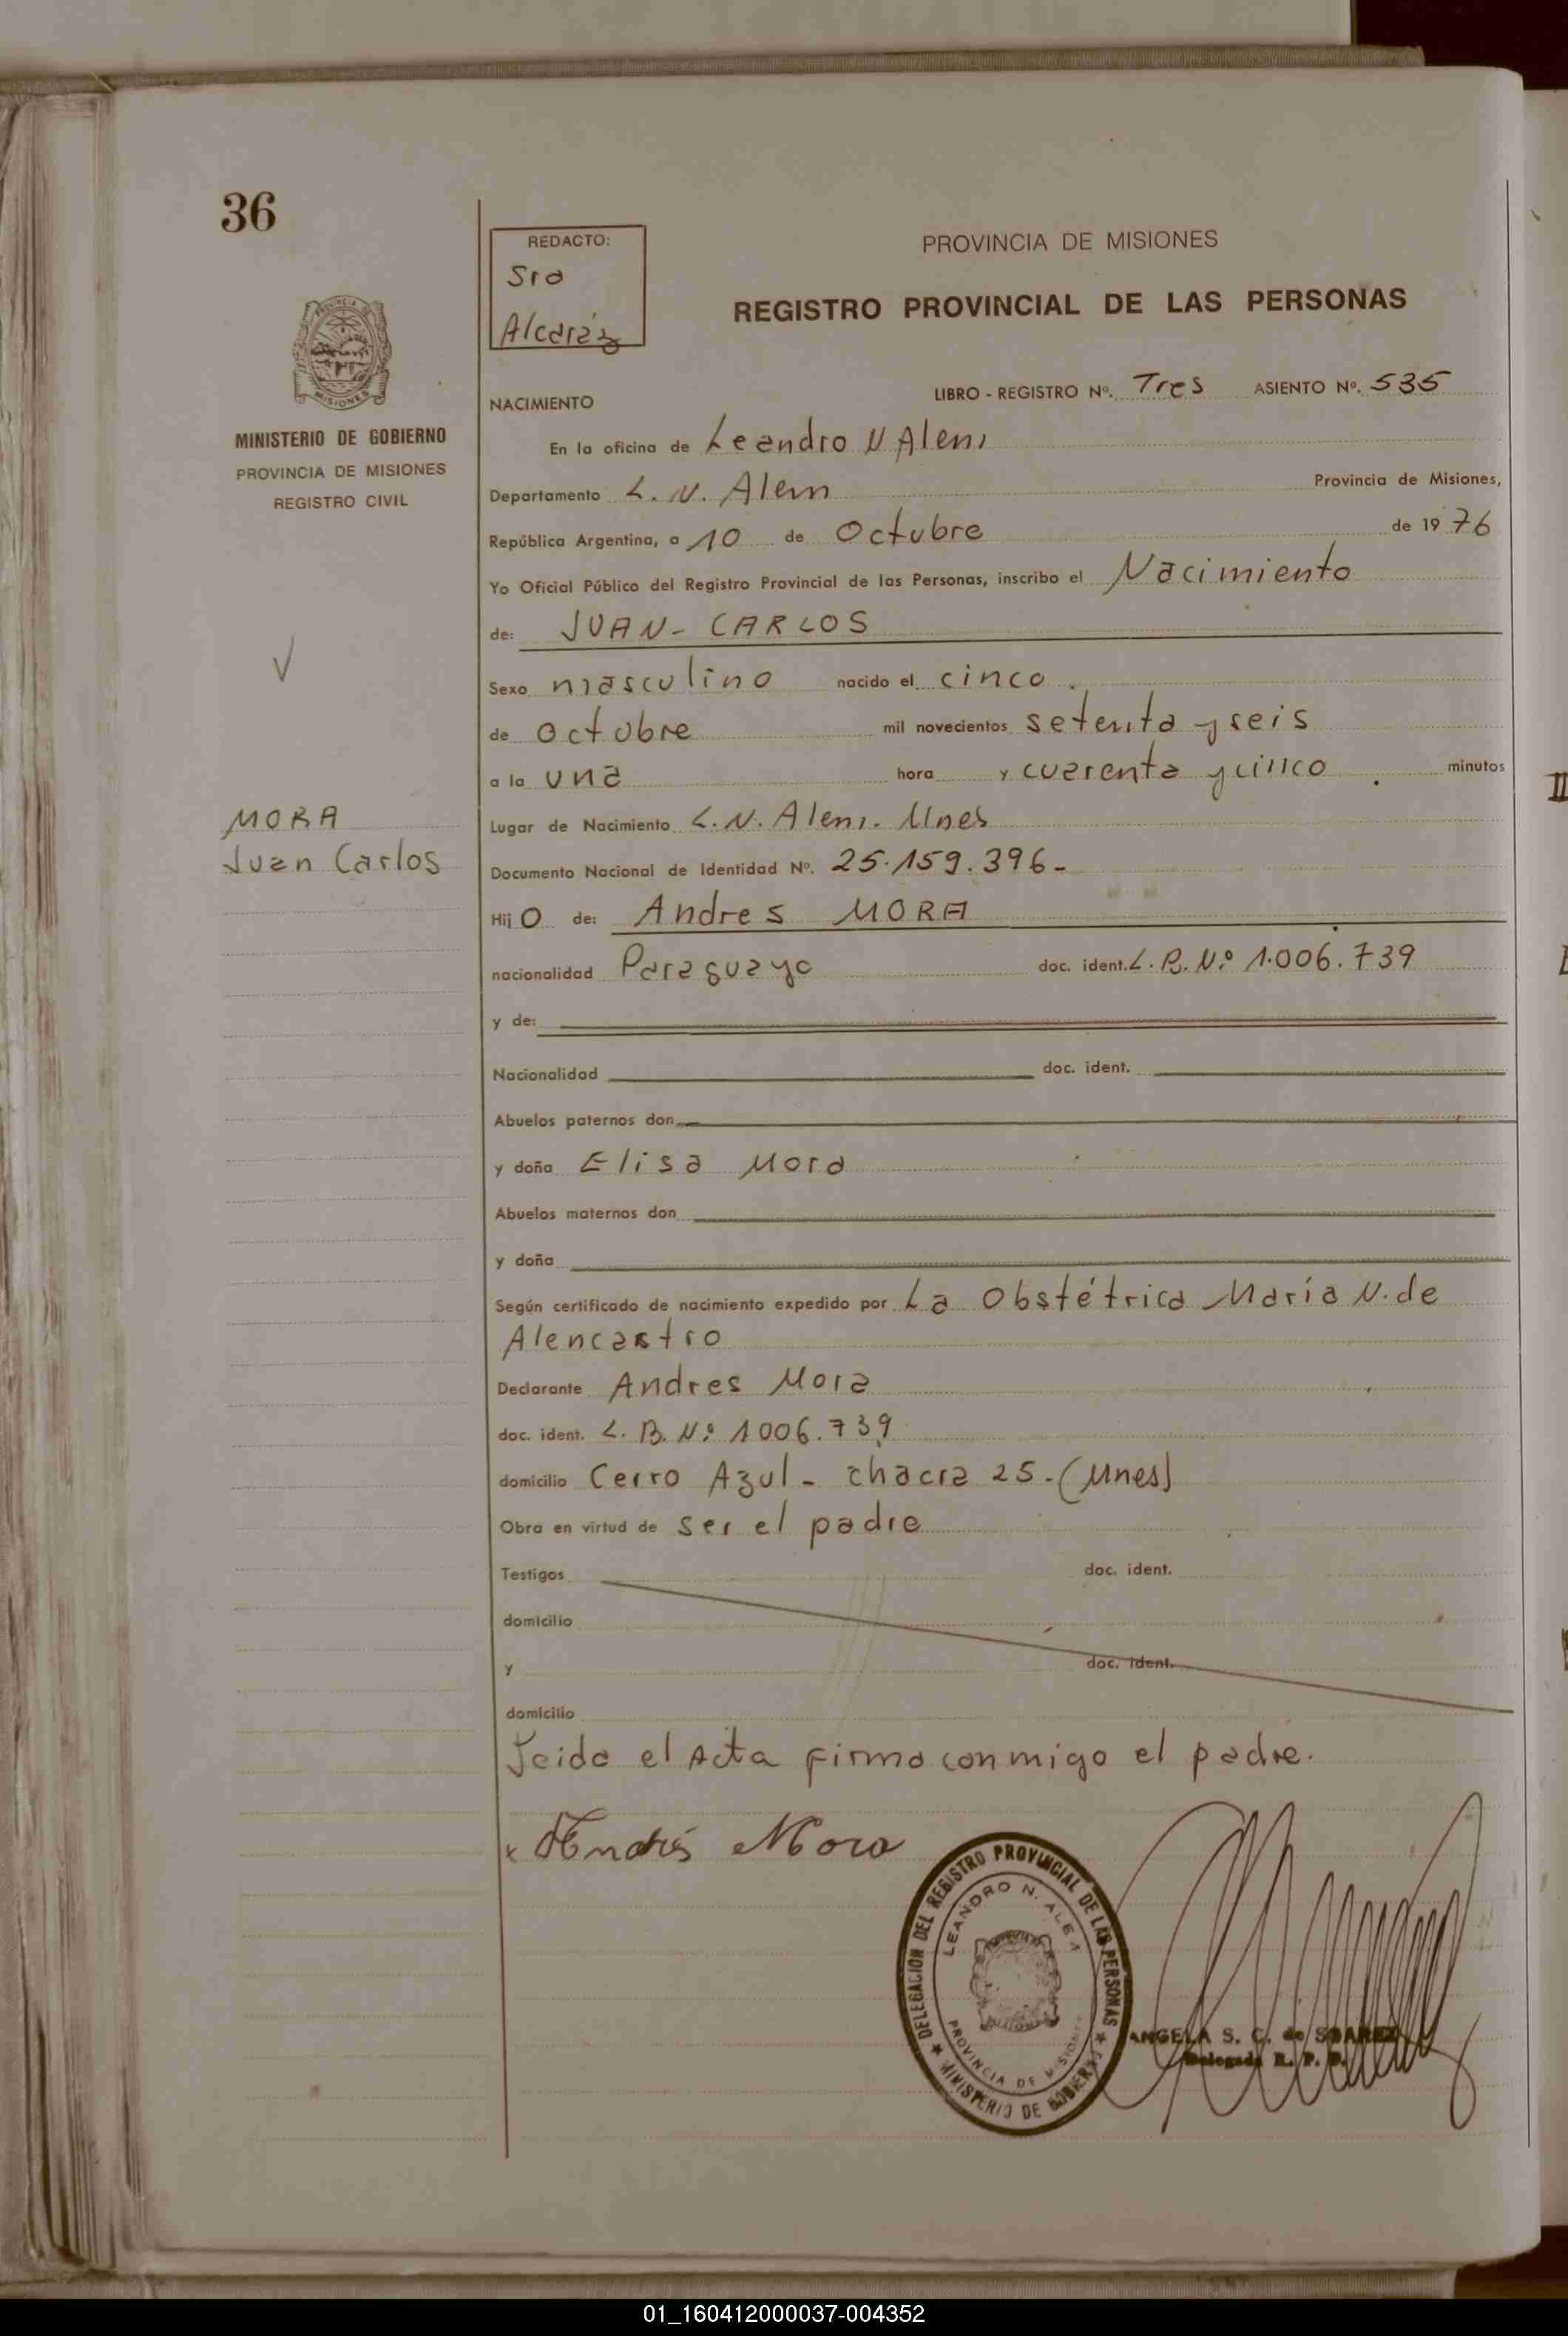 36
REDACTO:
Sra
Alcaráz
PROVINCIA DE MISIONES
REGISTRO PROVINCIAL DE LAS PERSONAS
MINISTERIO DE GOBIERNO
PROVINCIA DE MISIONES
REGISTRO CIVIL
NACIMIENTO
LIBRO - REGISTRO Nº. Tres ASIENTO Nº. 535
En la oficina de Leandro N Alem
Departamento L. N. Alem Provincia de Misiones,
República Argentina, a 10 de Octubre de 19 76
Yo Oficial Público del Registro Provincial de las Personas, inscribo el Nacimiento
de: JUAN - CARLOS
Sexo masculino nacido el cinco
de octubre mil novecientos setenta y seis
a la una hora y cuarenta y cinco minutos
MORA
Juan Carlos
Lugar de Nacimiento L. N. Alem. Mnes
Documento Nacional de Identidad Nº. 25.159.396-
Hij O de: Andres MORA
nacionalidad Paraguayo doc. ident. L. B. Nº 1.006.739
y de:
Nacionalidad doc. ident.
Abuelos paternos don
y doña Elisa Mora
Abuelos maternos don
y doña
Según certificado de nacimiento expedido por La Obstétrica María N. de
Alencastro
Declarante Andres Mora
doc. ident. L. B. Nº 1006.739
domicilio Cerro Azul - chacra 25 - (Mnes)
Obra en virtud de ser el padre
Testigos doc. ident.
domicilio
y doc. ident.
domicilio
Leida el Acta firma conmigo el padre.
x Andrés Mora
DELEGACION DEL REGISTRO PROVINCIAL DE LAS PERSONAS
LEANDRO N. ALEM
PROVINCIA DE MISIONES
MINISTERIO DE GOBIERNO
ANGELA S. C. de SUAREZ
Delegada R. P. P.
01_160412000037-004352